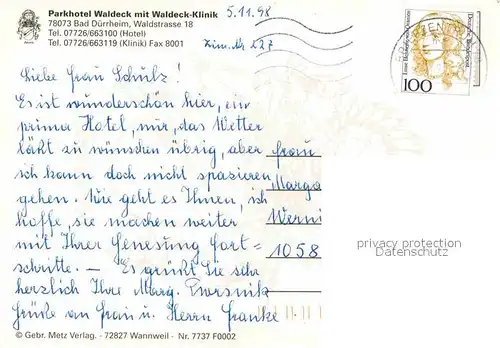 Parkhotel Waldeck mit Waldeck-Klinik
78073 Bad Dürrheim, Waldstrasse 18
Tel. 07726/663100 (Hotel)
Tel. 07726/663119 (Klinik) Fax 8001
5.11.98
Zim. Nr 227
100
Liebe Frau Schulz!
Es ist wunderschön hier, ein
prima Hotel, nur, das Wetter
läßt zu wünschen übrig, aber
ich kann doch nicht spazieren
gehen. Wie geht es Ihnen, ich
hoffe, sie machen weiter
mit Ihrer Genesung fort=
schritte. – Es grüßt Sie sehr
herzlich Ihre Marg.
Grüße an Frau u. Herrn Franke
Frau
Marga
Werni
1058
privacy protection
Datenschutz
© Gebr. Metz Verlag. - 72827 Wannweil - Nr. 7737 F0002